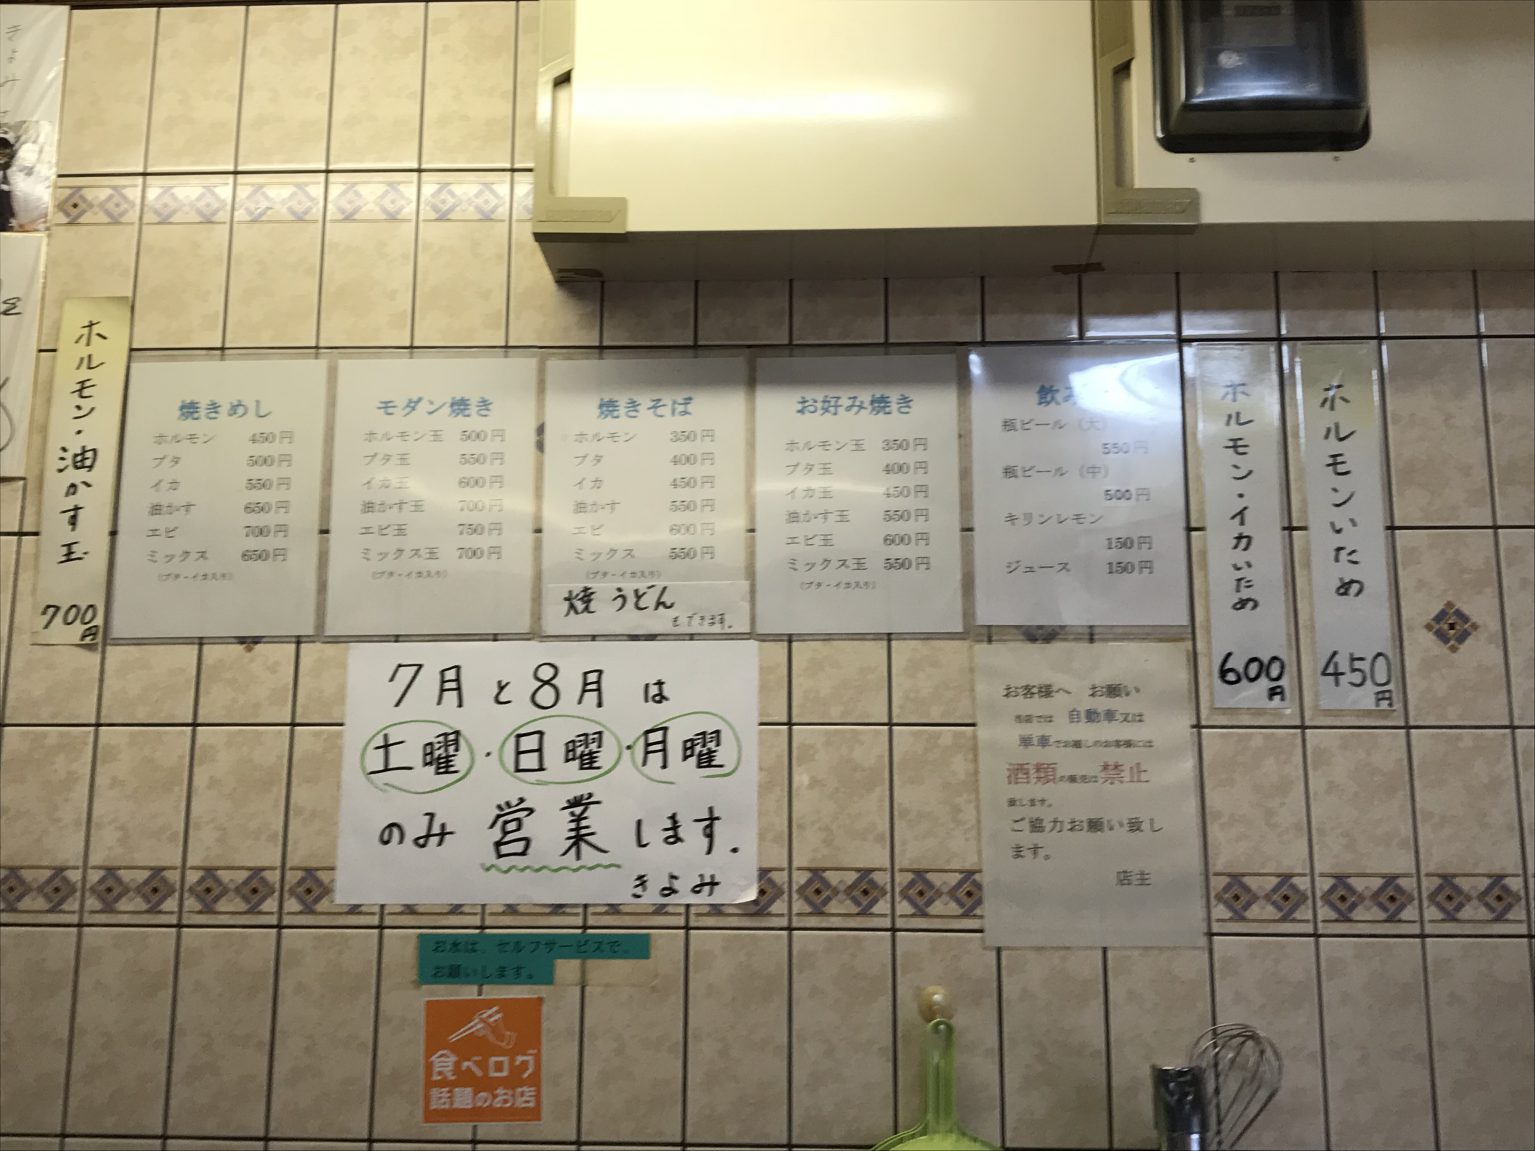 きよみ
ホルモン・油かす玉
700円
焼きめし
ホルモン 450円
ブタ 500円
イカ 550円
油かす 650円
エビ 700円
ミックス 650円
(ブタ・イカ入り)
モダン焼き
ホルモン玉 500円
ブタ玉 550円
イカ玉 600円
油かす玉 700円
エビ玉 750円
ミックス玉 700円
(ブタ・イカ入り)
焼きそば
ホルモン 350円
ブタ 400円
イカ 450円
油かす 550円
エビ 600円
ミックス 550円
(ブタ・イカ入り)
焼うどん
もできます。
お好み焼き
ホルモン玉 350円
ブタ玉 400円
イカ玉 450円
油かす玉 550円
エビ玉 600円
ミックス玉 550円
(ブタ・イカ入り)
飲み
瓶ビール(大)
550円
瓶ビール(中)
500円
キリンレモン
150円
ジュース 150円
ホルモン・イカいため
600円
ホルモンいため
450円
7月と8月は
土曜・日曜・月曜
のみ営業します.
きよみ
お客様へ お願い
当店では 自動車又は
単車でお越しのお客様には
酒類の販売は禁止
致します。
ご協力お願い致し
ます。
店主
お水は、セルフサービスで、
お願いします。
食べログ
話題のお店